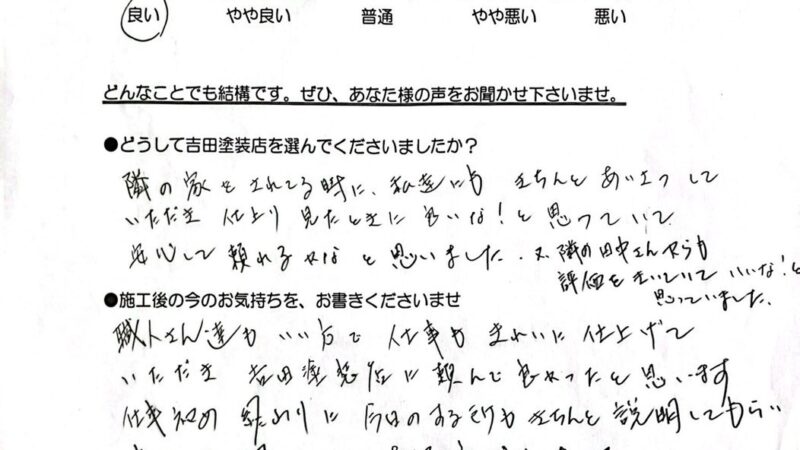 良い やや良い 普通 やや悪い 悪い
どんなことでも結構です。ぜひ、あなた様の声をお聞かせ下さいませ。
●どうして吉田塗装店を選んでくださいましたか？
隣の家をされてる時に、私達にも きちんとあいさつして
いただき 仕上り 見たときに良いな！と思っていて
安心して 頼れるかな と思いました。又、隣の田中さんからも
評価をきいていて いいな！と
思っていました。
●施工後の今のお気持ちを、お書きくださいませ
職人さん達も いい方で 仕事も きれいに仕上げて
いただき 吉田塗装店に頼んで良かったと思います
仕事初め 終わりに 今日のする事も きちんと 説明してもらい